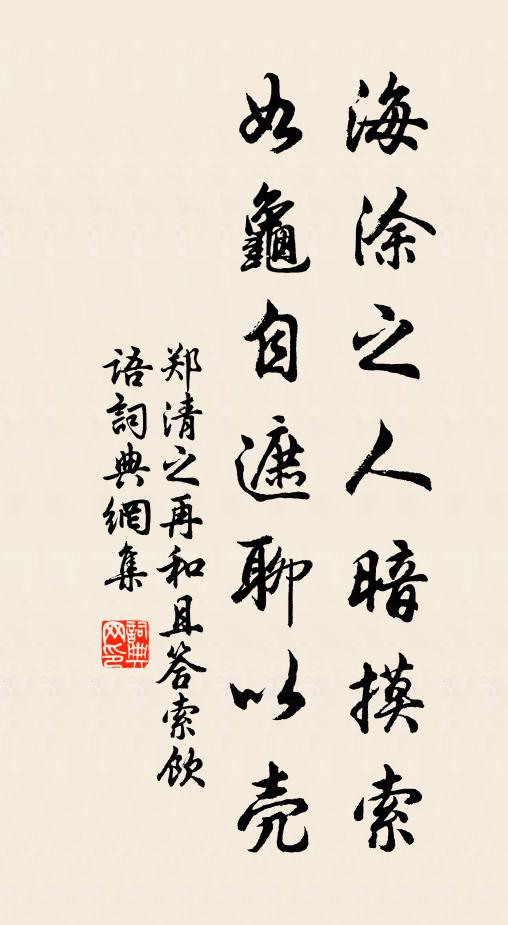 海涂之人暗摸索
如龜自遮聊以壳
郑清之再和且答索饮
語詞典網集
詞典网印